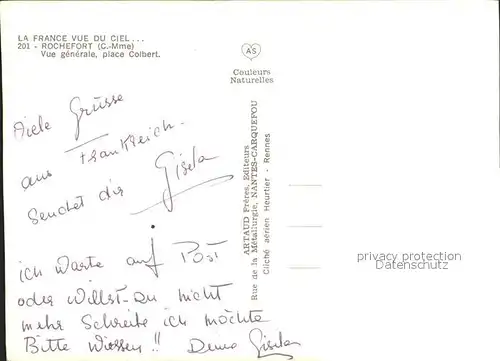 LA FRANCE VUE DU CIEL...
201 - ROCHEFORT (C.-Mme)
Vue générale, place Colbert.
AS
Couleurs
Naturelles
Viele Grüsse
aus Frankreich.
Sendet dir Gisela
ich warte auf Post
oder willst du nicht
mehr Schreibe ich möchte
Bitte Wissen!! Deine Gisela
ARTAUD Frères, Editeurs
Rue de la Métallurgie, NANTES-CARQUEFOU
Cliché aérien Heurtier - Rennes
privacy protection
Datenschutz